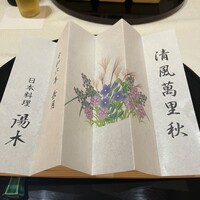 清風萬里秋
日本料理
陽木